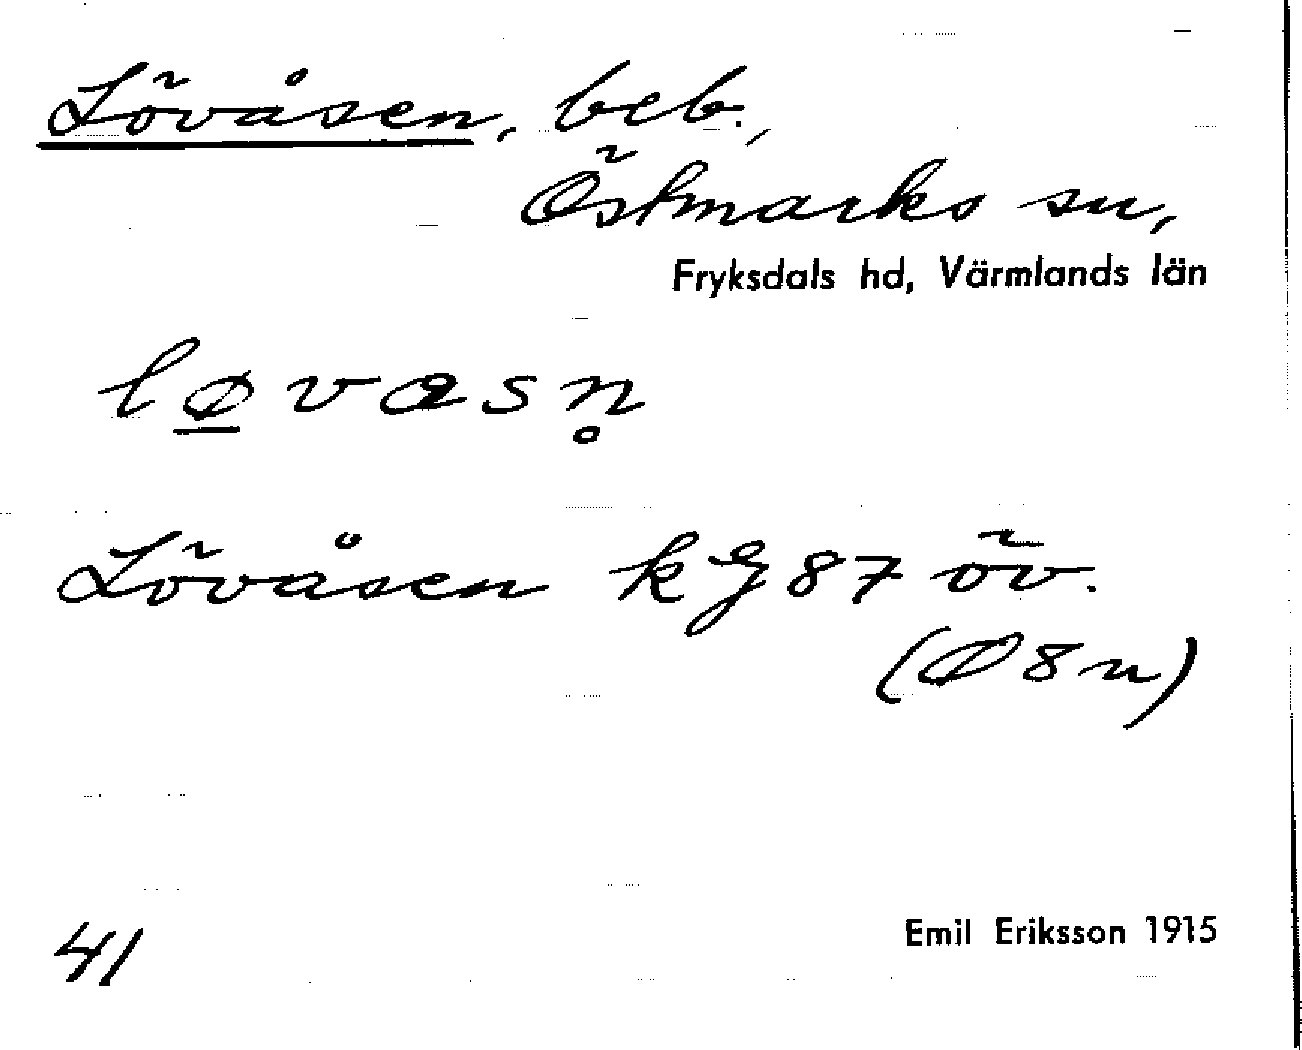 Lövåsen, beb.,
Östmarks sn,
Fryksdals hd, Värmlands län
løvasn̥
Lövåsen kG 87 öv.
(Ø 8 n)
41
Emil Eriksson 1915